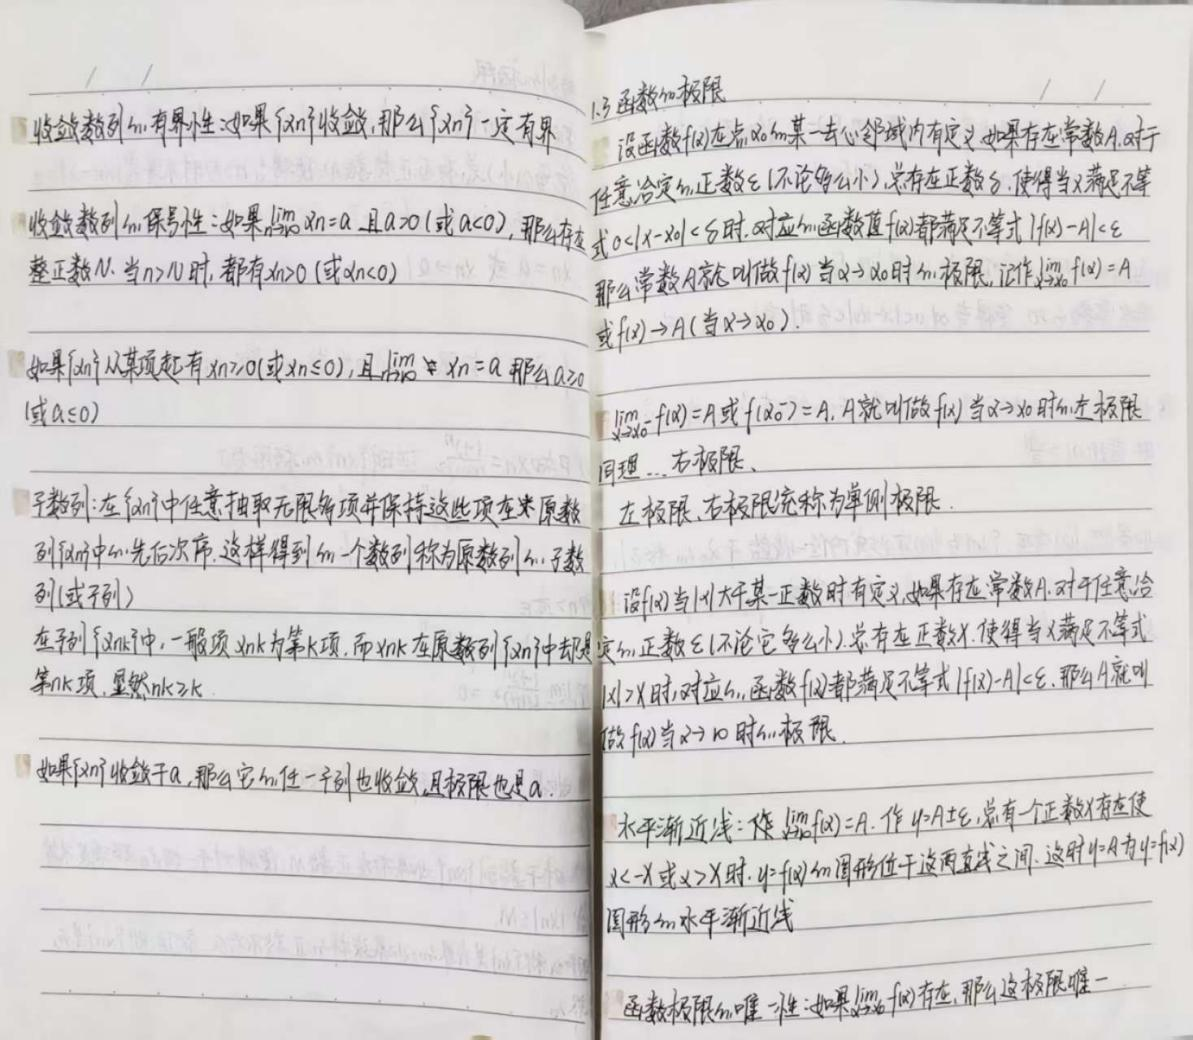 收敛数列的有界性:如果{xn}收敛,那么{xn}一定有界
收敛数列的保号性:如果lim n→∞ xn=a 且a>0(或a<0),那么存在
整正数N.当n>N时,都有xn>0(或xn<0)
如果{xn}从某项起有xn≥0(或xn≤0),且lim n→∞ xn=a 那么a≥0
(或a≤0)
子数列:在{xn}中任意抽取无限多项并保持这些项在原数
列{xn}中的先后次序,这样得到的一个数列称为原数列的子数
列(或子列)
在子列{xnk}中,一般项xnk为第k项,而xnk在原数列{xn}中却是
第nk项,显然nk≥k.
如果{xn}收敛于a,那么它的任一子列也收敛,且极限也是a.
1.3 函数的极限
设函数f(x)在点x0的某一去心邻域内有定义,如果存在常数A.对于
任意给定的正数ε(不论多么小),总存在正数δ.使得当x满足不等
式0<|x-x0|<δ时.对应的函数值f(x)都满足不等式|f(x)-A|<ε
那么常数A就叫做f(x)当x→x0时的极限,记作lim x→x0 f(x)=A
或f(x)→A(当x→x0).
lim x→x0⁻ f(x)=A或f(x0⁻)=A. A就叫做f(x)当x→x0时的左极限
同理...右极限、
左极限、右极限统称为单侧极限.
设f(x)当|x|大于某一正数时有定义,如果存在常数A.对于任意给
定的正数ε(不论它多么小).总有在正数X.使得当x满足不等式
|x|>X时,对应的函数f(x)都满足不等式|f(x)-A|<ε.那么A就叫
做f(x)当x→∞时的极限.
水平渐近线:lim x→∞ f(x)=A.作y=A±ε,总有一个正数X存在使
x<-X或x>X时.y=f(x)的图形位于这两直线之间.这时y=A为y=f(x)
图形的水平渐近线
函数极限的唯一性:如果lim x→x0 f(x)存在,那么这极限唯一